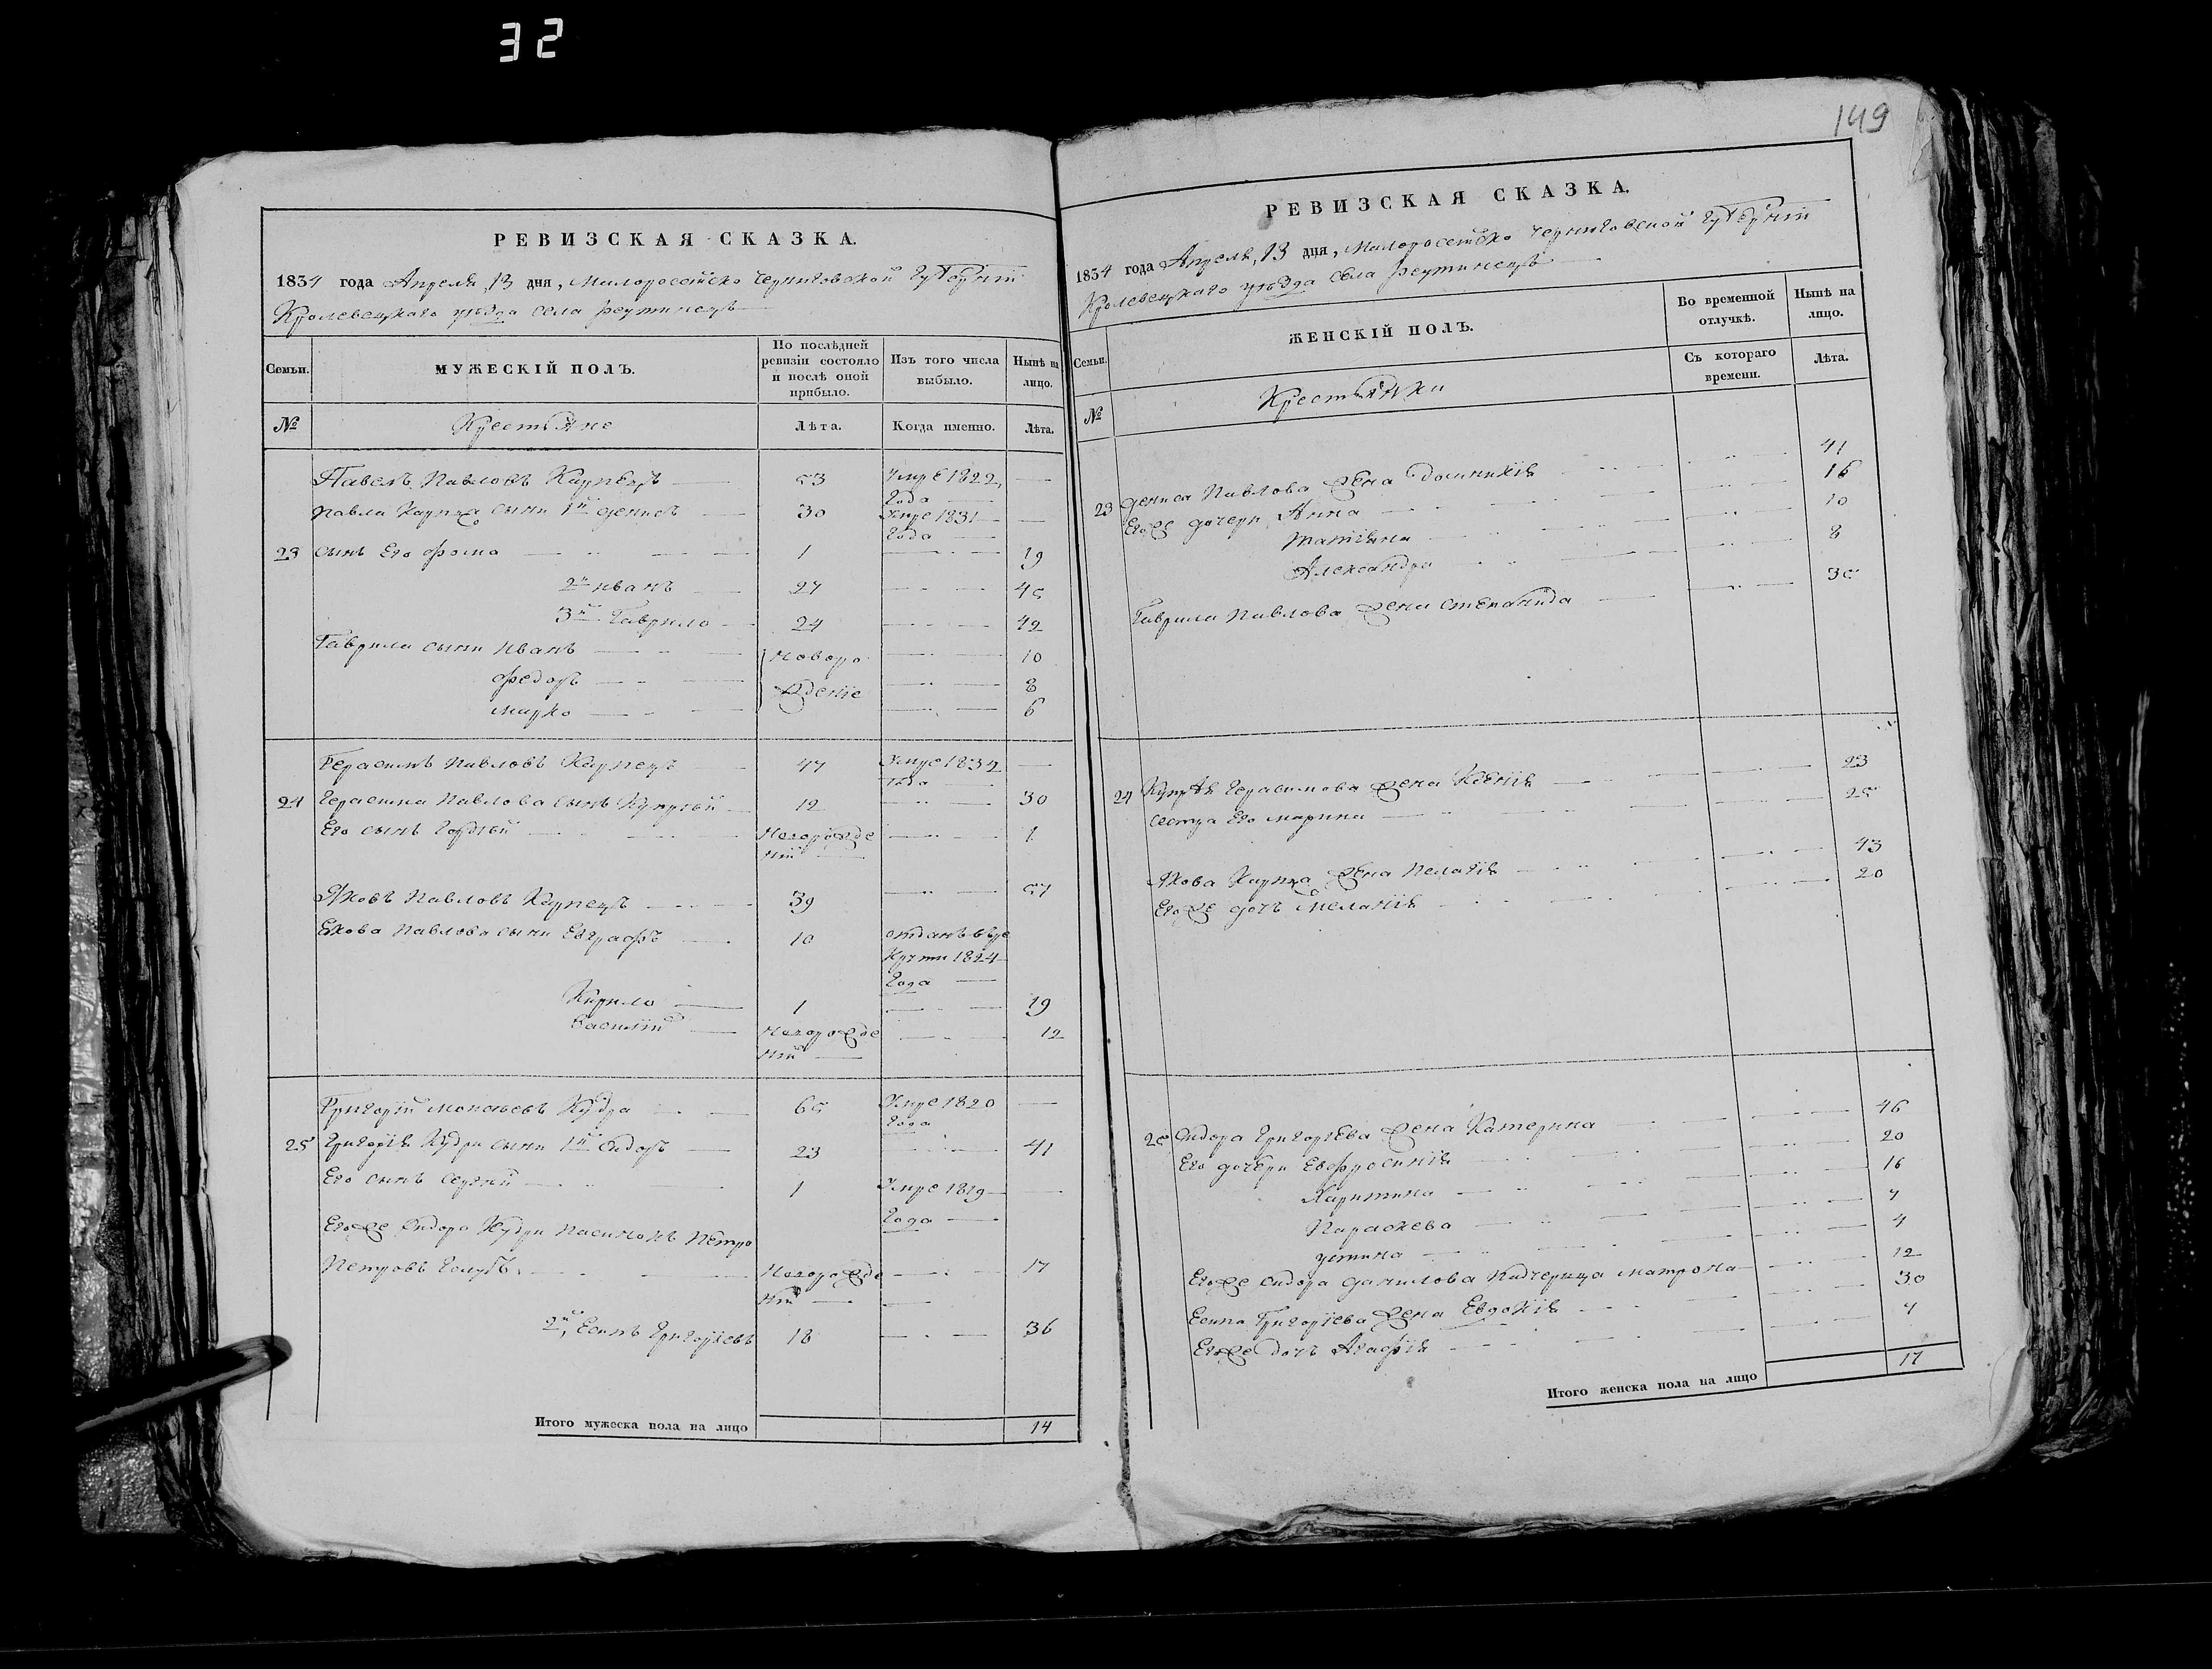 32
149
РЕВИЗСКАЯ СКАЗКА.
1834 года Апреля 13 дня, Малоросеійско Черниговской Губерніи
Кролевецкаго уѣзда села Реутинецъ
Семьи. МУЖЕСКІЙ ПОЛЪ. По послѣдней ревизіи состояло и послѣ оной прибыло. Изъ того числа выбыло. Нынѣ на лицо.
№ Крестьяне Лѣта. Когда именно. Лѣта.
Павелъ Павловъ Карпецъ 53 Умре 1822
Года
Павла Карпца сыни 1й Денисъ 30 Умре 1831
Года
23 Сынъ Его Фома 1 19
2й Иванъ 27 45
3й Гаврило 24 42
Гаврила сыни Иванъ новоро 10
Федоръ ждение 8
Марко 6
Герасимъ Павловъ Карпецъ 47 Умре 1832
Года
24 Герасима Павлова сынъ Купріѣй 12 30
Его сынъ Гордѣй Новорожде 1
ніи
Яковъ Павловъ Карпецъ 39 57
Якова Павлова сыни Евграфъ 10 отданъ в ре
Круты 1824
Года
Кирило 1 19
Василій новорожде 12
ніи
Григорій Мокѣевъ Кудра 65 Умре 1820
Года
25 Григорія Кудри сыни 1й Сидоръ 23 41
Его сынъ Сергий 1 Умре 1819
Года
Егоже Сидора Кудри пасинокъ Петро
Петровъ Голубъ Новорожде 17
ніи
2й, Есипъ Григоріевъ 18 36
Итого мужеска пола на лицо 14
РЕВИЗСКАЯ СКАЗКА.
1834 года Апреля, 13 дня, Малоросеійско Черниговской Губерніи
Кролевецкаго уѣзда села Реутинецъ
Семьи. ЖЕНСКІЙ ПОЛЪ. Во временной отлучкѣ. Нынѣ на лицо.
№ Крестьянки Съ котораго времени. Лѣта.
23 Дениса Павлова жена Домникія 41
Егоже дочери Анна 16
Татіяна 10
Александра 8
Гаврила Павлова жена Степанида 35
24 Купрѣя Герасимова жена Ксенія 23
сестра Его Марина 25
Якова Карпца жена Пелагія 43
Егоже дочъ Меланія 20
25 Сидора Григоріева жена Катерина 46
Его дочери Евфросинія 20
Харитина 16
Параскева 7
Устина 4
Егоже Сидора Данилова Падчерица Матрона 12
Есипа Григоріева жена Евдокія 30
Егоже дочъ Агафія 4
Итого женска пола на лицо 17